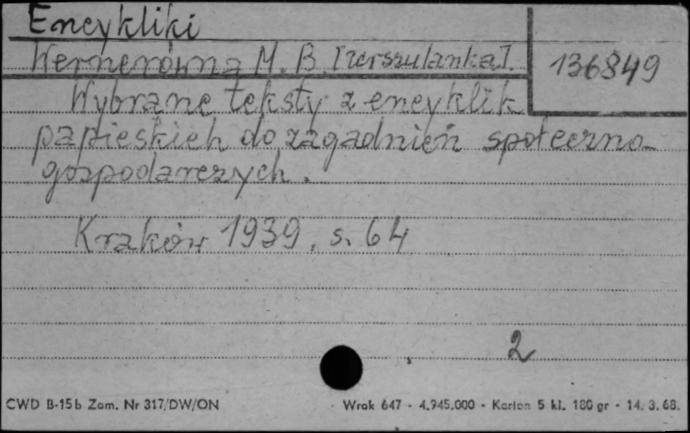 Encykliki
Wernerówna M. B. [Urszulanka].
136849
Wybrane teksty z encyklik
papieskich do zagadnień społeczno-
gospodarczych.
Kraków 1939, s. 64
2
CWD B-15b Zam. Nr 317/DW/ON
Wrok 647 - 4.945.000 - Karton 5 kl. 180 gr - 14. 3. 68.